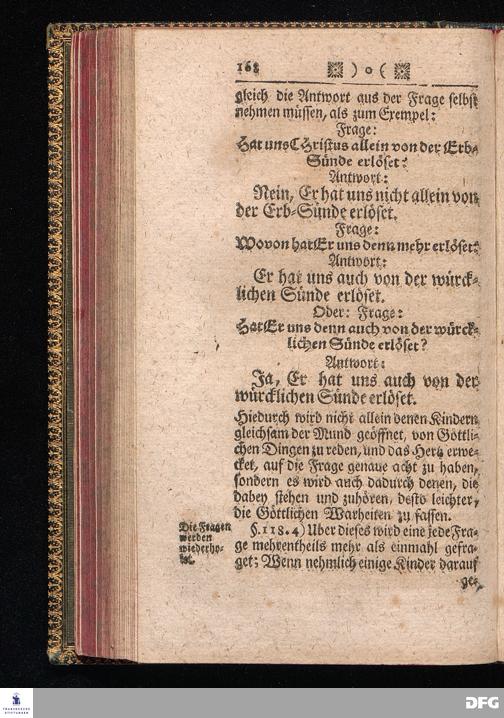 168 ) o (
gleich die Antwort aus der Frage selbst
nehmen müssen, als zum Exempel:
Frage:
Hat uns CHristus allein von der Erb-
Sünde erlöset?
Antwort:
Nein, Er hat uns nicht allein von
der Erb-Sünde erlöset.
Frage:
Wovon hat Er uns denn mehr erlöset?
Antwort:
Er hat uns auch von der würck-
lichen Sünde erlöset.
Oder: Frage:
Hat Er uns denn auch von der würck-
lichen Sünde erlöset?
Antwort:
Ja, Er hat uns auch von der
würcklichen Sünde erlöset.
Hiedurch wird nicht allein denen Kindern
gleichsam der Mund geöffnet, von Göttli-
chen Dingen zu reden, und das Hertz erwe-
cket, auf die Frage genaue acht zu haben,
sondern es wird auch dadurch denen, die
dabey stehen und zuhören, desto leichter,
die Göttlichen Warheiten zu fassen.
Die Fragen
werden
wiederho-
let.
§. 118. 4) Uber dieses wird eine jede Fra-
ge mehrentheils mehr als einmahl gefra-
get; Wenn nehmlich einige Kinder darauf
ge-
FRANCKESCHE
STIFTUNGEN
DFG